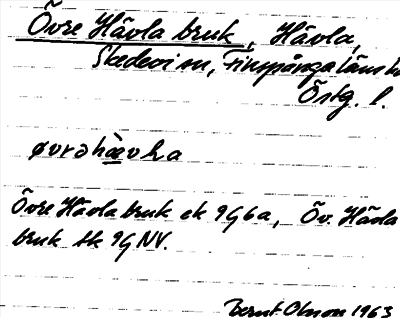 Övre Hävla bruk, Hävla,
Skedevi sn, Finspånga läns hd
Östg. l.
øvrəhæ̀vla
Övre Hävla bruk ek 9G6a, Öv. Hävla
bruk tk 9G NV.
Bernt Olsson 1963